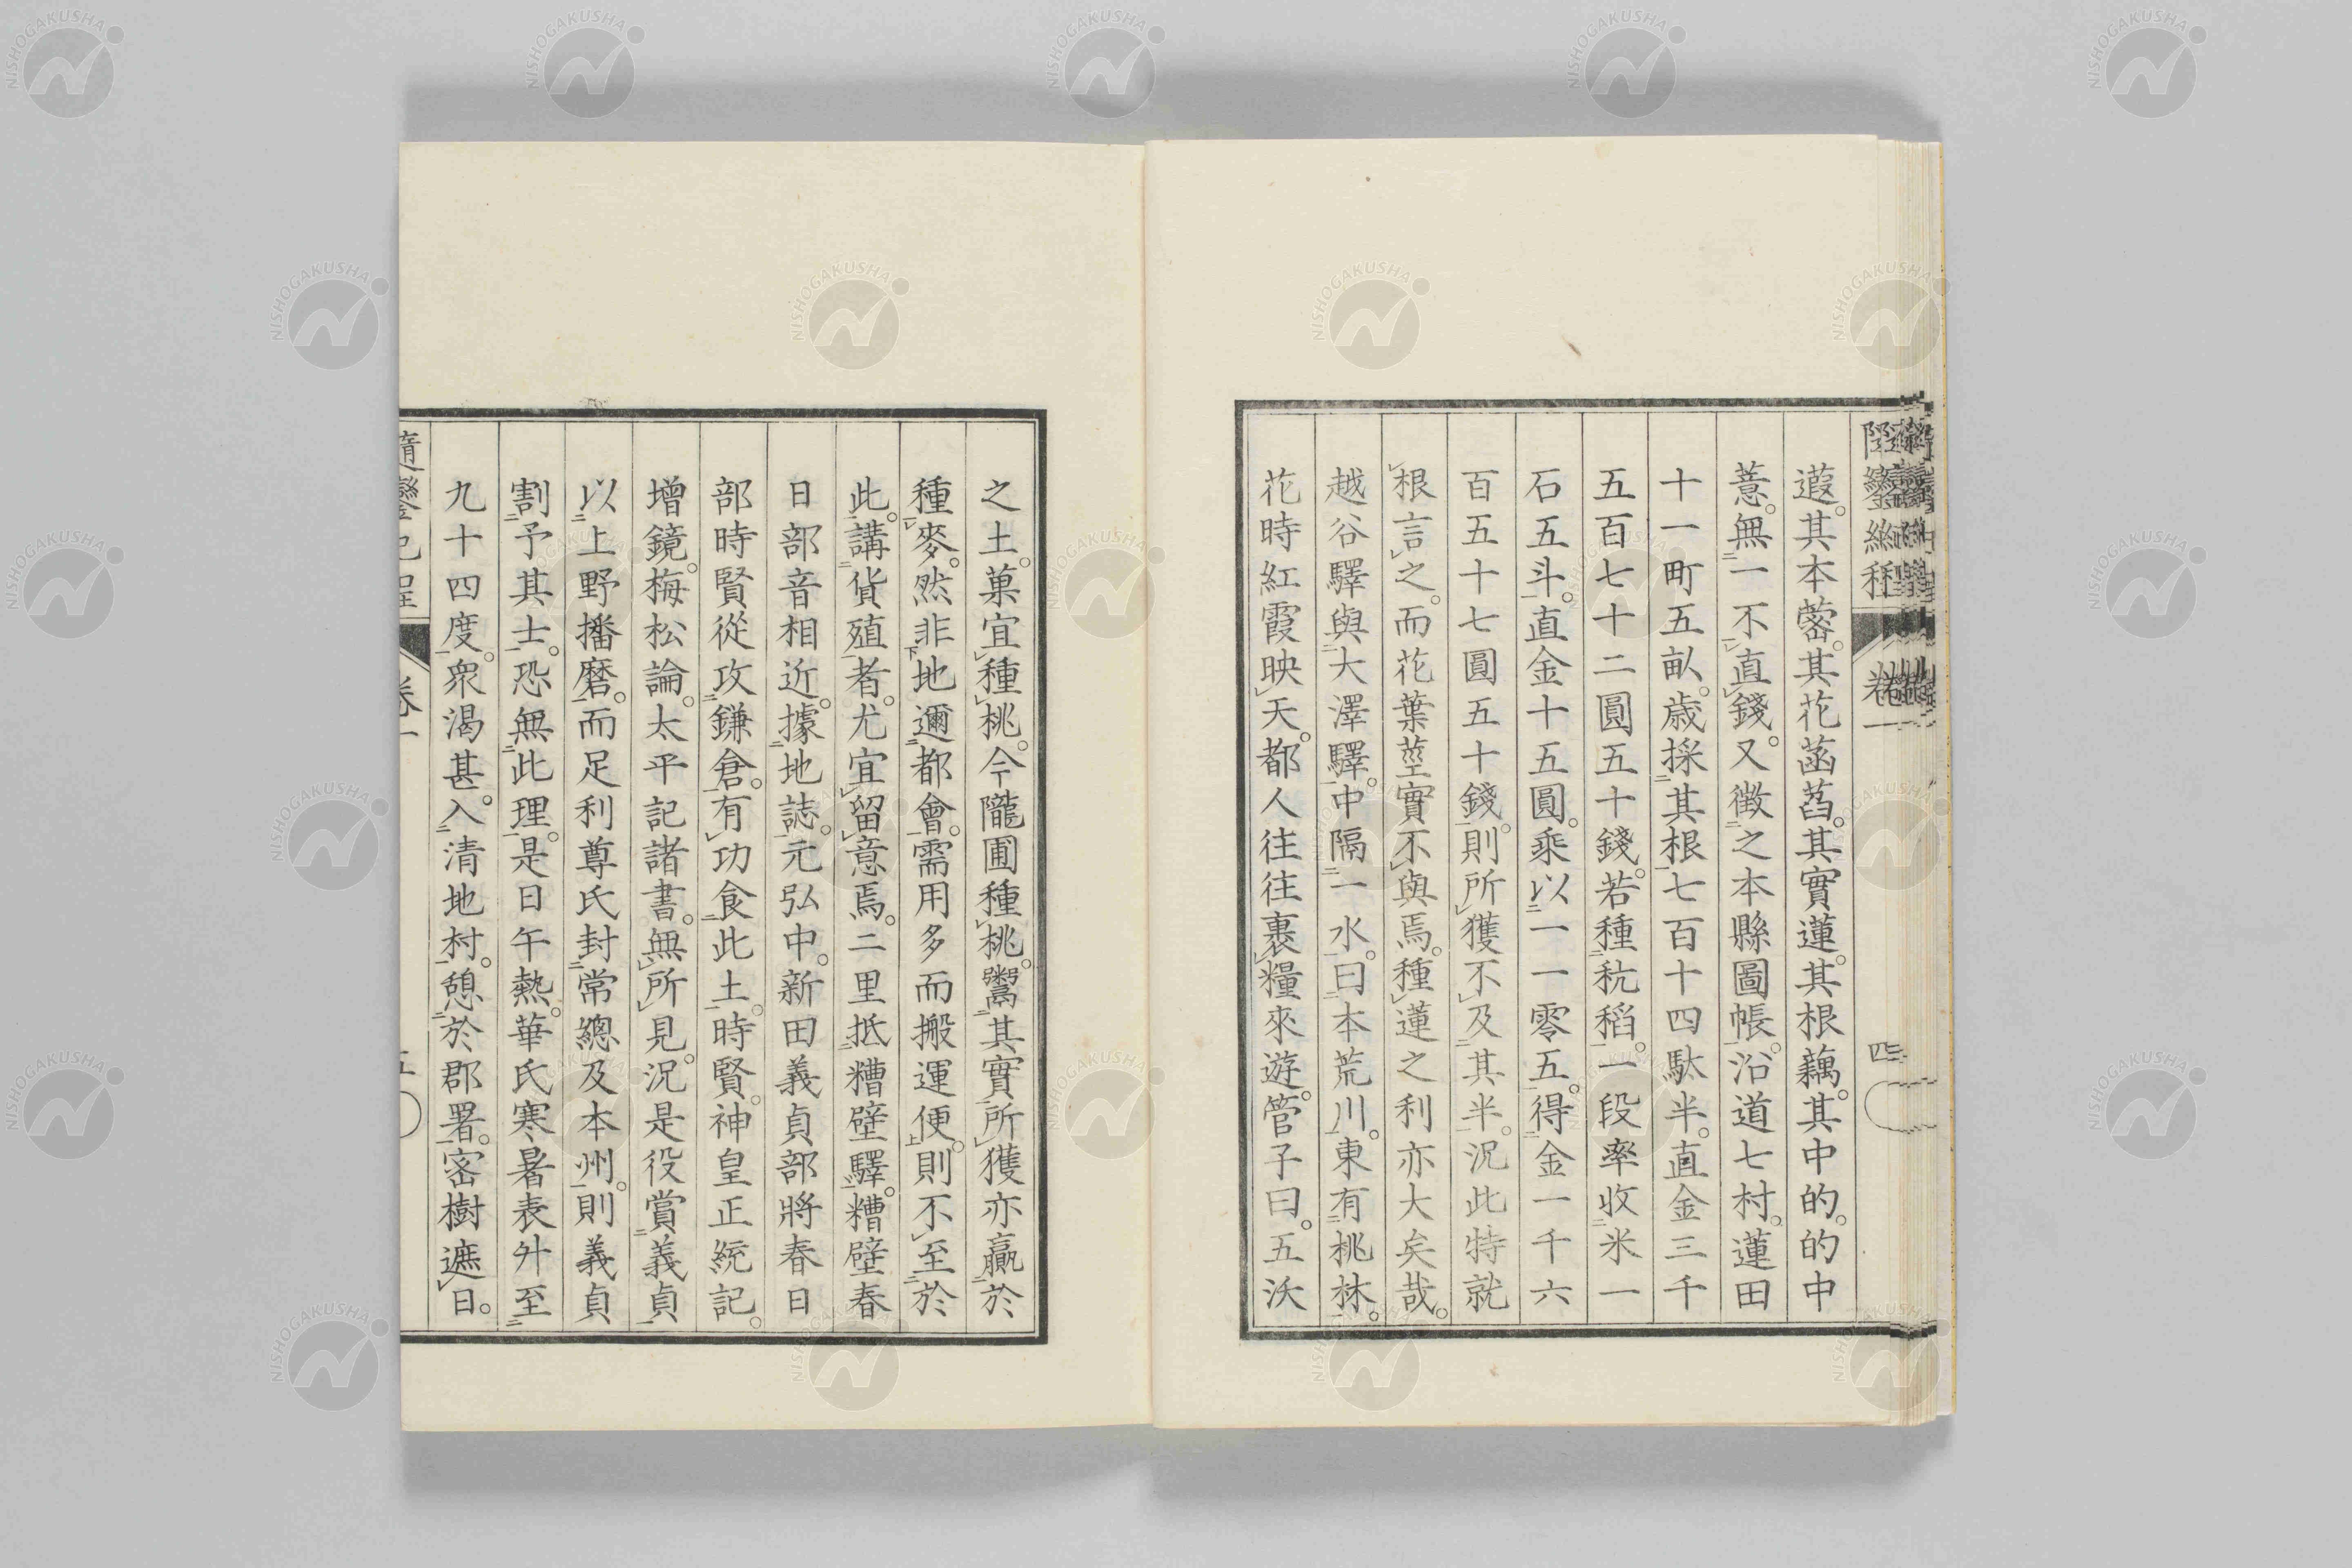 遐。其本蔤。其花菡萏。其實蓮。其根藕。其中的。的中
薏。無一不直錢。又徵之本縣圖帳。沿道七村。蓮田
十一町五畝。歲採其根七百十四駄半。直金三千
五百七十二圓五十錢。若種秔稻。一段率收米一
石五斗。直金十五圓。乘以一一零五。得金一千六
百五十七圓五十錢。則所獲不及其半。況此特就
根言之。而花葉莖實不與焉。種蓮之利亦大矣哉。
越谷驛與大澤驛。中隔一水。曰本荒川。東有桃林。
花時紅霞映天。都人往往裹糧來遊。管子曰。五沃
之土。菓宜種桃。今隴圃種桃。鬻其實所獲亦贏於
種麥。然非地邇都會。需用多而搬運便。則不至於
此。講貨殖者。尤宜留意焉。二里抵糟壁驛。糟壁春
日部音相近。據地誌。元弘中。新田義貞部將春日
部時賢從攻鎌倉。有功食此土。時賢。神皇正統記。
增鏡。梅松論。太平記諸書。無所見。況是役賞義貞
以上野播磨。而足利尊氏封常總及本州。則義貞
割予其士。恐無此理。是日午熱。華氏寒暑表升至
九十四度。衆渴甚。入清地村。憩於郡署。密樹遮日。
隨鑾紀程
卷一
五
卷一
四
NISHOGAKUSHA